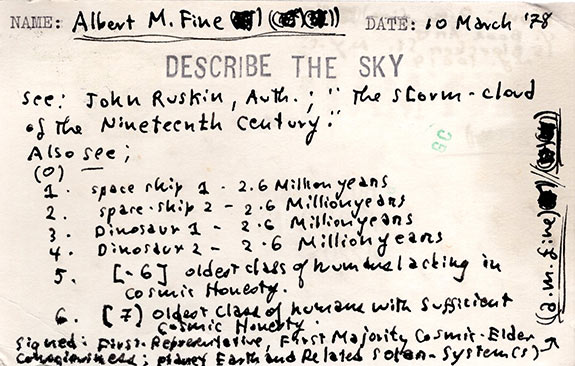 NAME: Albert M. Fine DATE: 10 March '78
DESCRIBE THE SKY
See: John Ruskin, Auth.; "The storm-cloud
of the Nineteenth Century."
Also see;
(0)
1. space ship 1 - 2.6 Million years
2. space-ship 2 - 2.6 Million years
3. Dinosaur 1 - 2.6 Million years
4. Dinosaur 2 - 2.6 Million years
5. [-6] oldest class of humans lacking in
Cosmic Honesty.
6. [7] oldest Class of humans with Sufficient
Cosmic Honesty.
Signed: First-Representative, First Majority Cosmic-Elder
Consciousness; planet Earth and Related Solar-System(s)
a.m. fine